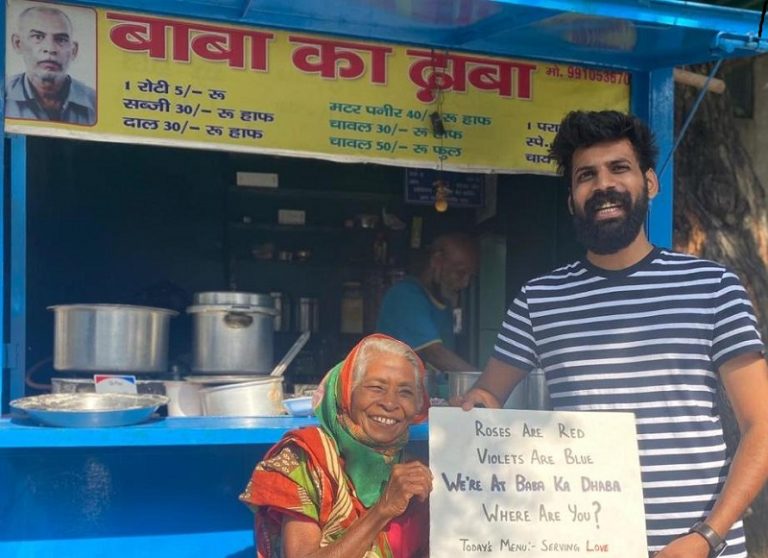 बाबा का ढाबा
मो. 991053670
1 रोटी 5/– रू
सब्जी 30/– रू हाफ
दाल 30/– रू हाफ
मटर पनीर 40/– रू हाफ
चावल 30/– रू हाफ
चावल 50/– रू फुल
1 परा
स्पे.
चाय
ROSES ARE RED
VIOLETS ARE BLUE
WE'RE AT BABA KA DHABA
WHERE ARE YOU?
TODAY'S MENU:- SERVING LOVE